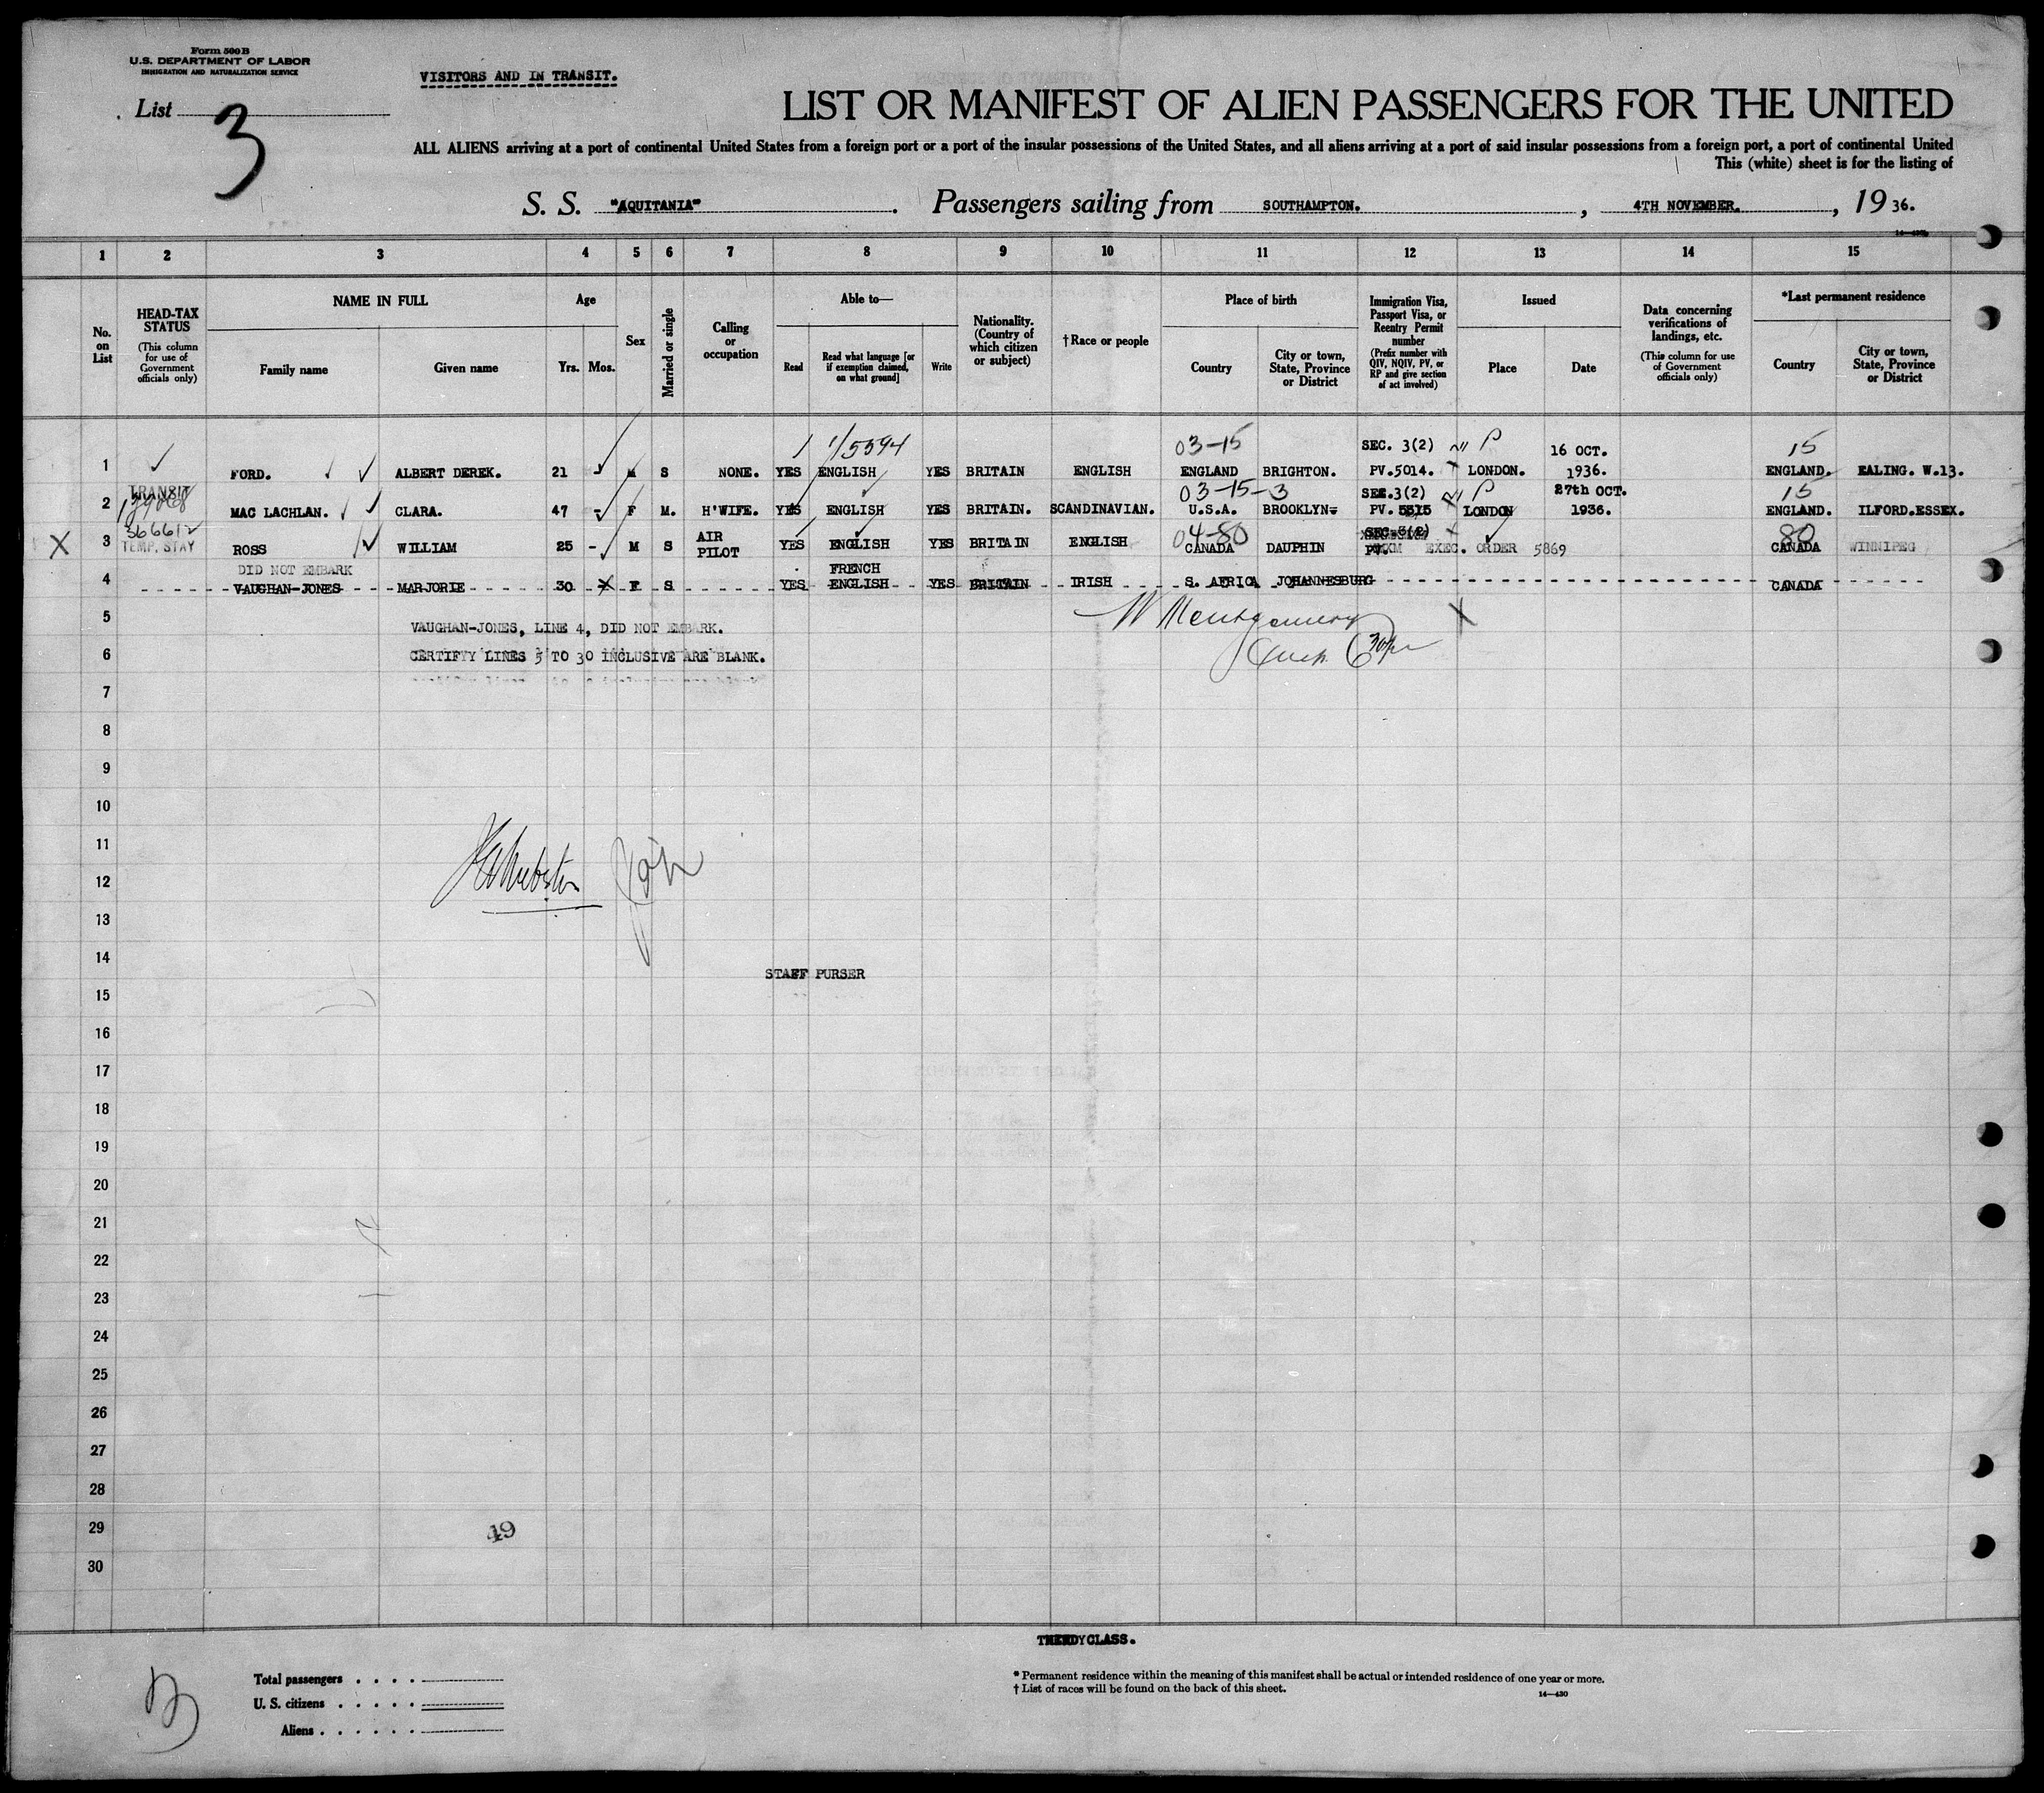 Form 500 B
U.S. DEPARTMENT OF LABOR
IMMIGRATION AND NATURALIZATION SERVICE
VISITORS AND IN TRANSIT.
List 3
LIST OR MANIFEST OF ALIEN PASSENGERS FOR THE UNITED
ALL ALIENS arriving at a port of continental United States from a foreign port or a port of the insular possessions of the United States, and all aliens arriving at a port of said insular possessions from a foreign port, a port of continental United
This (white) sheet is for the listing of
S. S. "AQUITANIA" . Passengers sailing from SOUTHAMPTON. , 4TH NOVEMBER. , 19 36.
1 2 3 4 5 6 7 8 9 10 11 12 13 14 15
No. on List
HEAD-TAX STATUS (This column for use of Government officials only)
NAME IN FULL
Family name Given name
Age
Yrs. Mos.
Sex
Married or single
Calling or occupation
Able to—
Read Read what language [or if exemption claimed, on what ground] Write
Nationality. (Country of which citizen or subject)
†Race or people
Place of birth
Country City or town, State, Province or District
Immigration Visa, Passport Visa, or Reentry Permit number (Prefix number with QIV, NQIV, PV, or RP and give section of act involved)
Issued
Place Date
Data concerning verifications of landings, etc. (This column for use of Government officials only)
*Last permanent residence
Country City or town, State, Province or District
1/5394 03-15 SEC. 3(2) P 16 OCT. 15
1 FORD. ALBERT DEREK. 21 - M S NONE. YES ENGLISH YES BRITAIN ENGLISH ENGLAND BRIGHTON. PV.5014. LONDON. 1936. ENGLAND. EALING. W.13.
TRANSIT 03-15-3 SEC.3(2) P 27th OCT. 15
2 MAC LACHLAN. CLARA. 47 - F M. H'WIFE. YES ENGLISH YES BRITAIN. SCANDINAVIAN. U.S.A. BROOKLYN- PV. 5315 LONDON 1936. ENGLAND. ILFORD.ESSEX.
366612 AIR 04-80 SEC 3(2) 80
3 TEMP. STAY ROSS WILLIAM 25 - M S PILOT YES ENGLISH YES BRITAIN ENGLISH CANADA DAUPHIN PV. EXEC. ORDER 5869 CANADA WINNIPEG
X
DID NOT EMBARK FRENCH
4 VAUGHAN-JONES MARJORIE 30 F S YES ENGLISH YES BRITAIN IRISH S. AFRICA JOHANNESBURG CANADA
5 VAUGHAN-JONES, LINE 4, DID NOT EMBARK. W Montgomery X
6 CERTIFY LINES 5 TO 30 INCLUSIVE ARE BLANK.
7
8
9
10
11
12
13
14 STAFF PURSER
15
16
17
18
19
20
21
22
23
24
25
26
27
28
29 49
30
CLASS.
Total passengers . . . .
U. S. citizens . . . . .
Aliens . . . . . .
* Permanent residence within the meaning of this manifest shall be actual or intended residence of one year or more.
† List of races will be found on the back of this sheet.
14—430